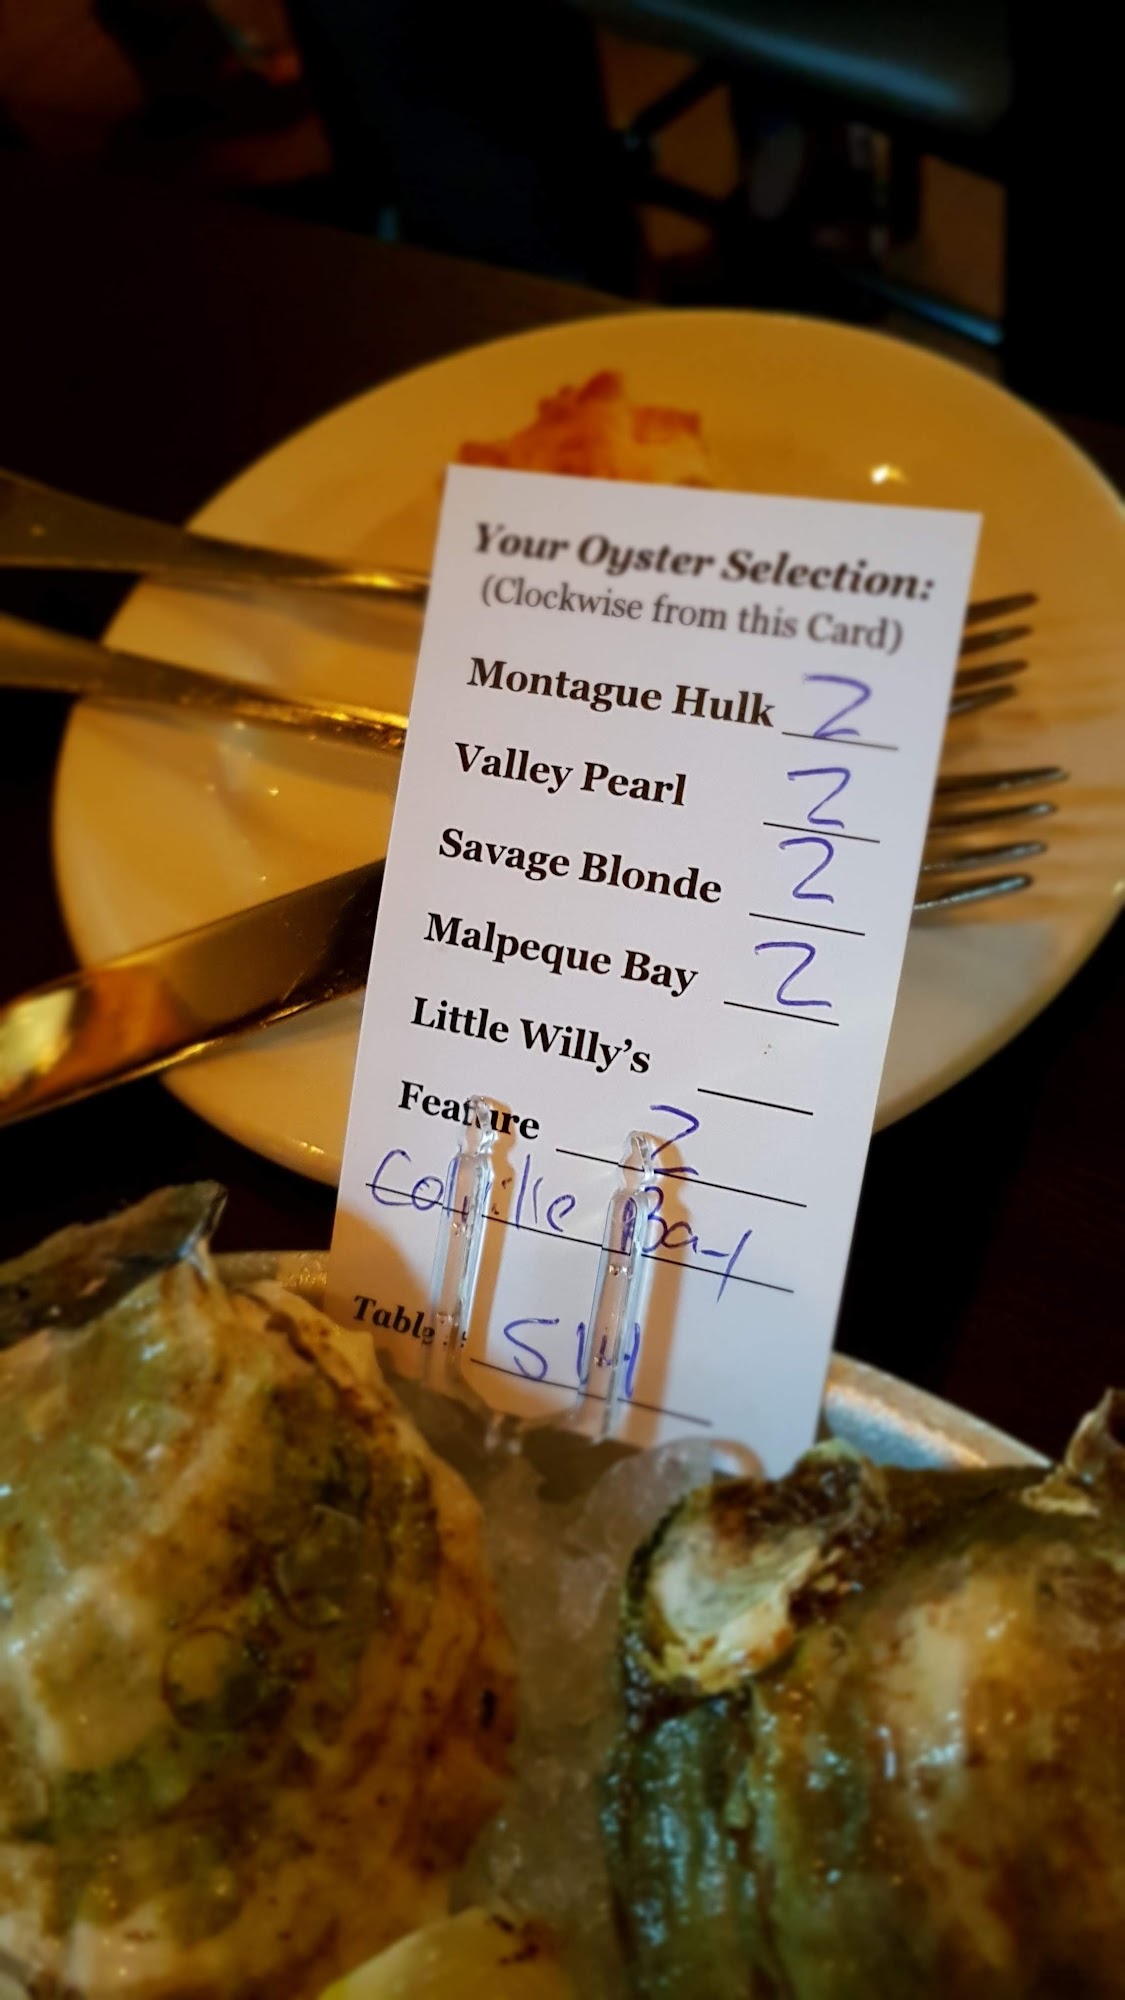 Your Oyster Selection:
(Clockwise from this Card)
Montague Hulk 2
Valley Pearl 2
Savage Blonde 2
Malpeque Bay 2
Little Willy's
Feature 2
Colville Bay
Table